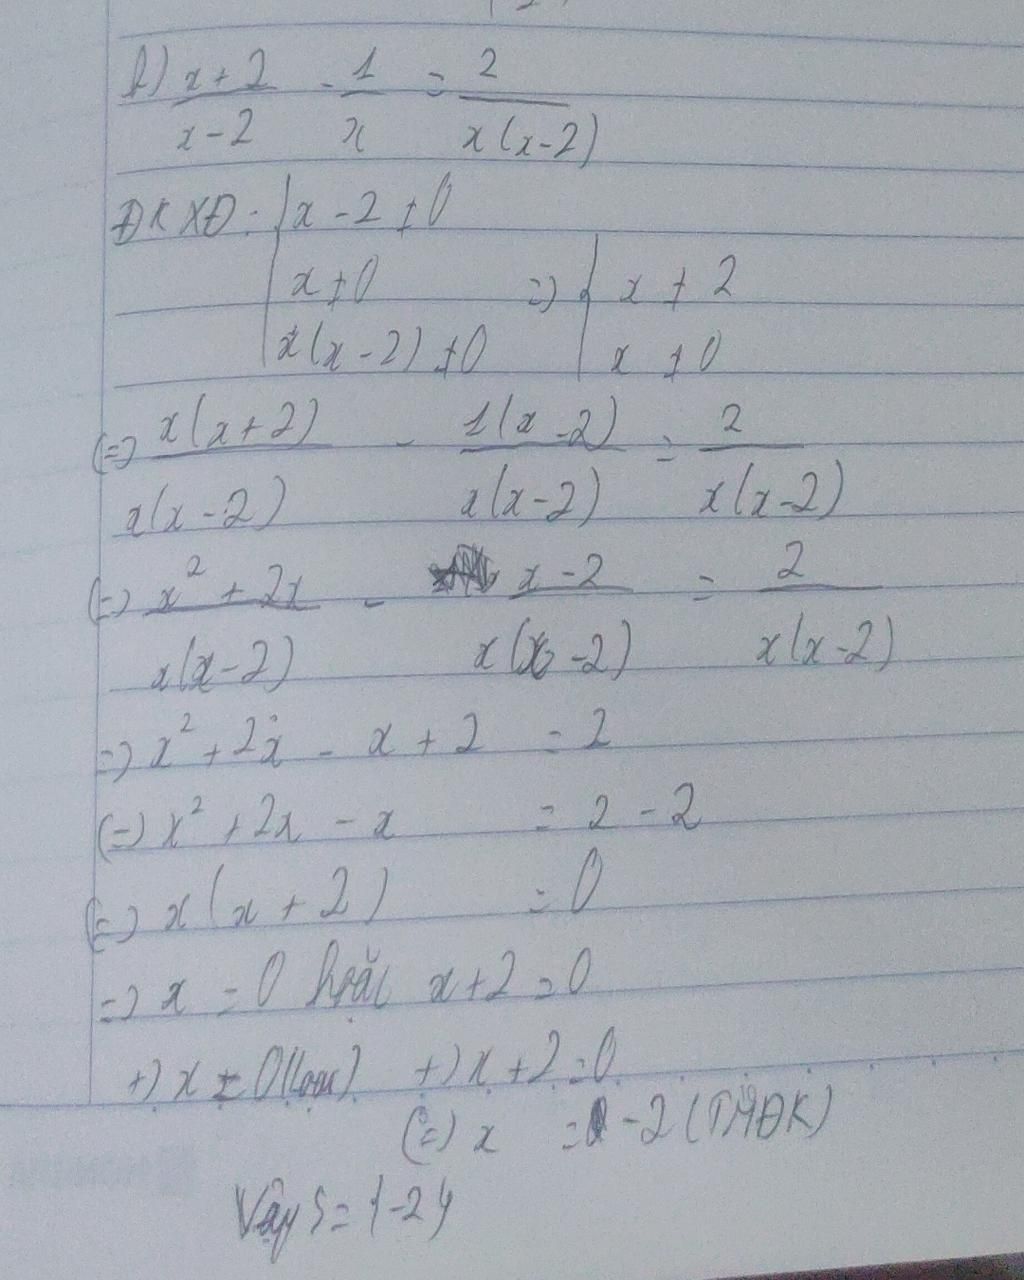 b) x+2/x-2 - 1/x = 2/x(x-2)
ĐKXĐ: { x - 2 ≠ 0
x ≠ 0 => { x ≠ 2
x(x-2) ≠ 0 x ≠ 0
(=) x(x+2)/x(x-2) - 1(x-2)/x(x-2) = 2/x(x-2)
(=) x² + 2x/x(x-2) - x-2/x(x-2) = 2/x(x-2)
=) x² + 2x - x + 2 = 2
(=) x² + 2x - x = 2 - 2
(=) x(x + 2) = 0
=) x = 0 hoặc x+2 = 0
+) x = 0 (loại) +) x + 2 = 0
(=) x = -2 (TMĐK)
Vậy S = {-2}